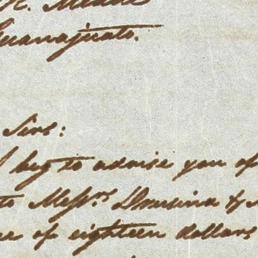 Guanajuato.
Sirs:
I beg to advise you of
to Messrs Drusina &
of eighteen dollars